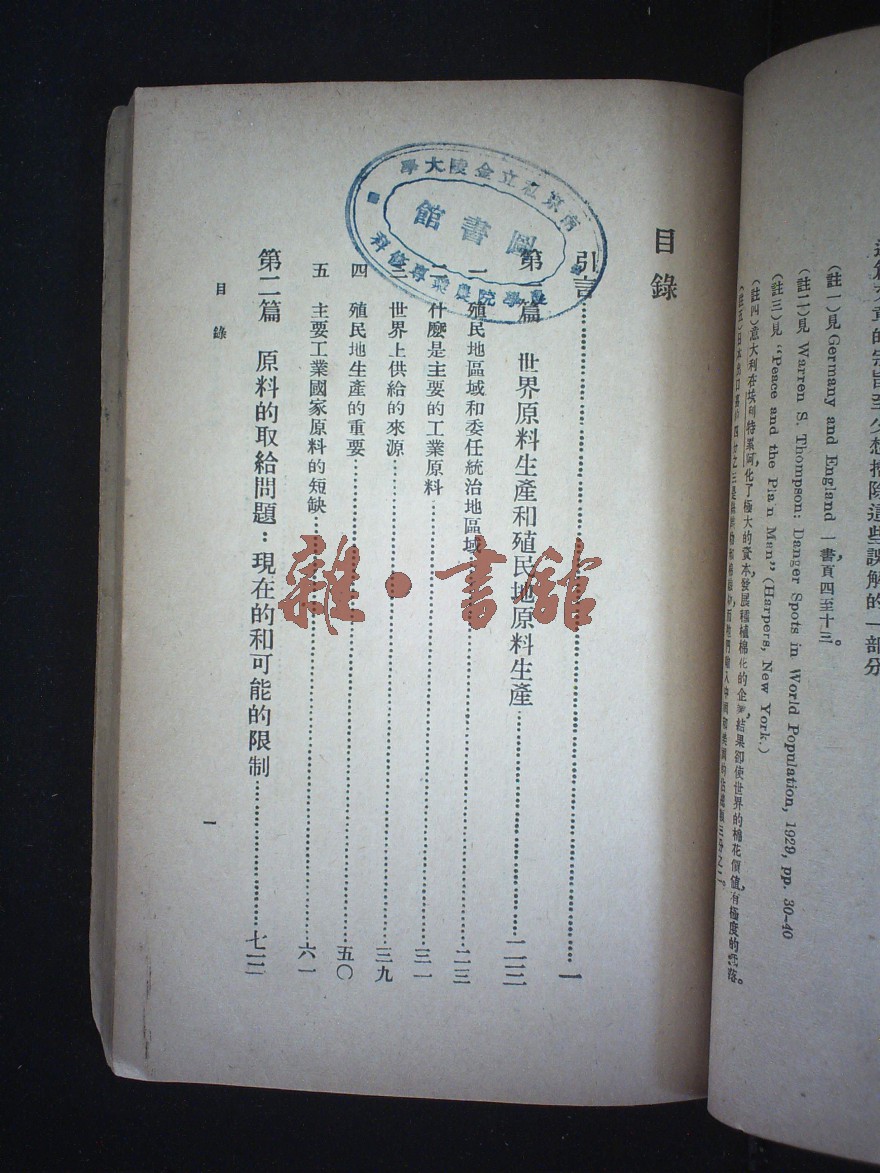 這篇文章的宗旨至少想掃除這些誤解的一部分
(註一)見Germany and England 一書,頁四至十三。
(註二)見 Warren S. Thompson: Danger Spots in World Population, 1929, pp. 30-40
(註三)見 "Peace and the Plain Man" (Harpers, New York.)
(註四)意大利在埃利特累阿化了極大的資本,發展種植棉花的企業,結果卻使世界的棉花價值,有極度的低落。
(註五)日本出口
目錄
引言……一
第一篇 世界原料生產和殖民地原料生產……二二
一 殖民地區域和委任統治地區域……二三
二 什麼是主要的工業原料……三一
三 世界上供給的來源……三九
四 殖民地生產的重要……五〇
五 主要工業國家原料的短缺……六一
第二篇 原料的取給問題:現在的和可能的限制……七二
目錄
一
南京私立金陵大學
圖書館
農學院農業專修科
雜·書館